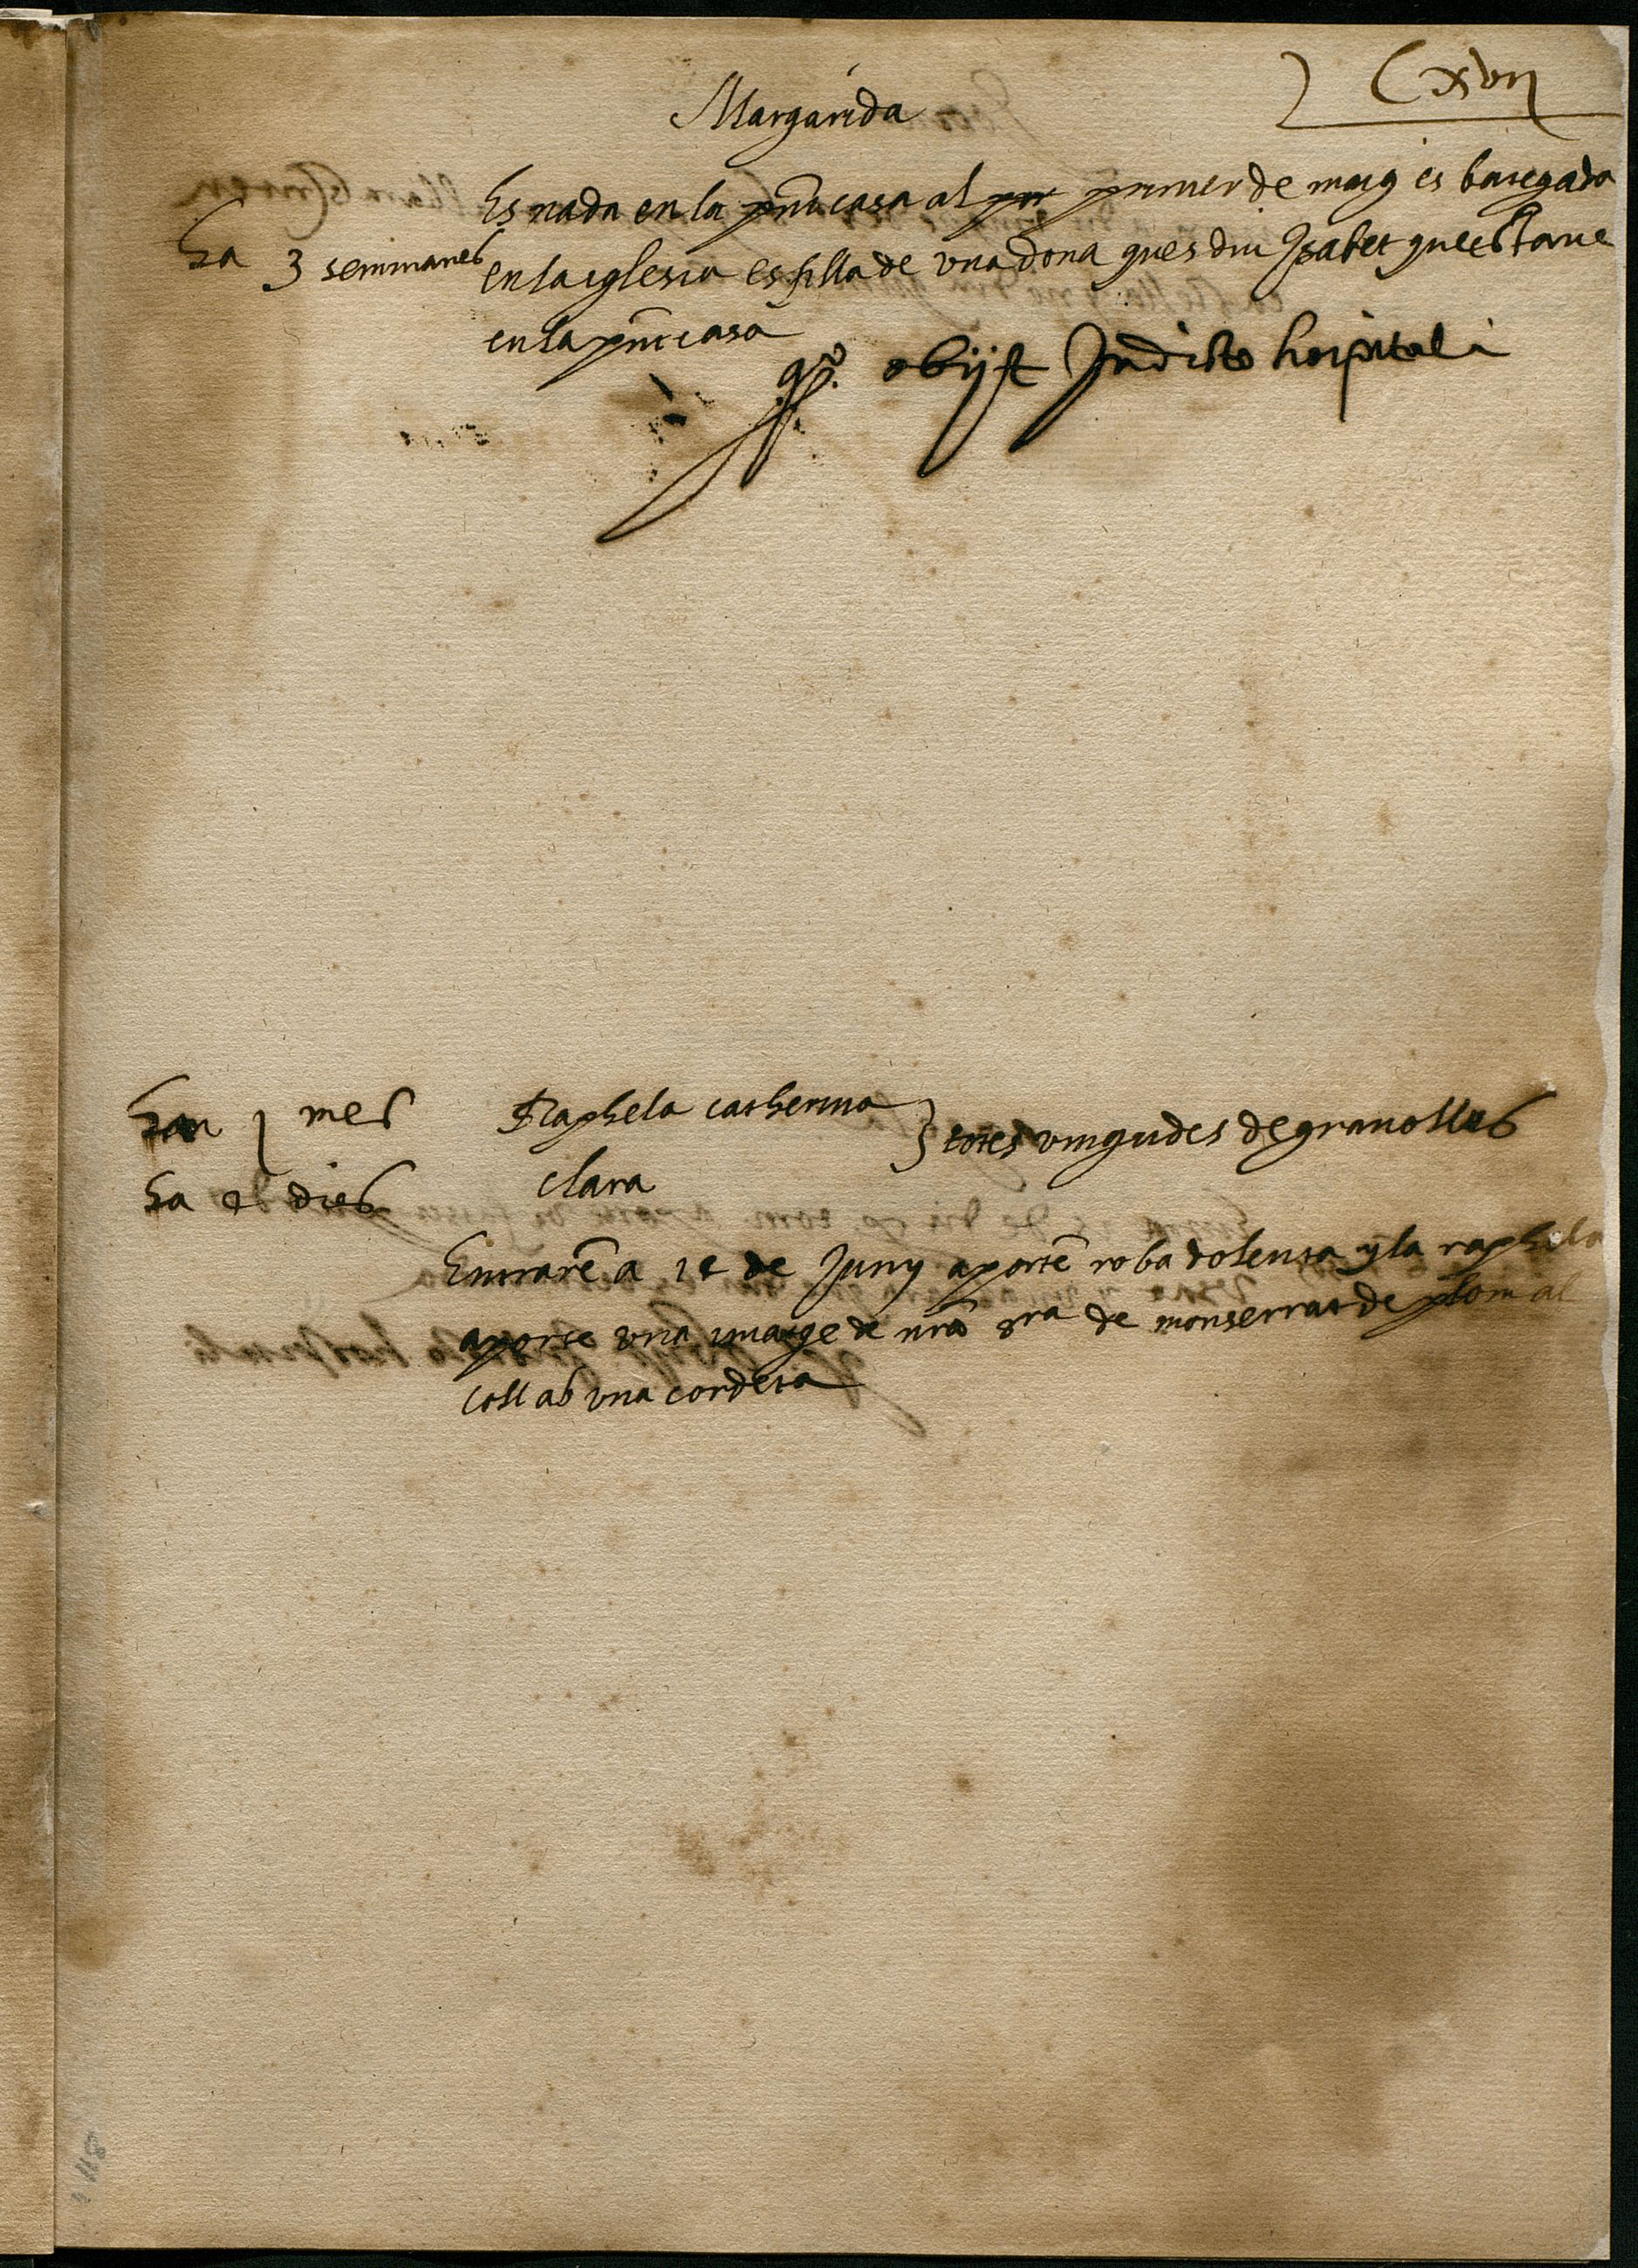 Cxvij
Margarida
Es nada en la pñt casa al primer de maig es bategada
ha 3 semmanes en la iglesia es filla de vna dona ques diu Isabet que estave
en la pñt casa
obijt In dicto hospitali
han 1 mes Raphela catherina } totes vingudes de granolles
ha 2 dies clara
Entrarē a 12 de Juny aportē roba dolenta y la raphela
aporte vna imatge de nrã sra de monserrat de plom al
coll ab vna cordeta
118